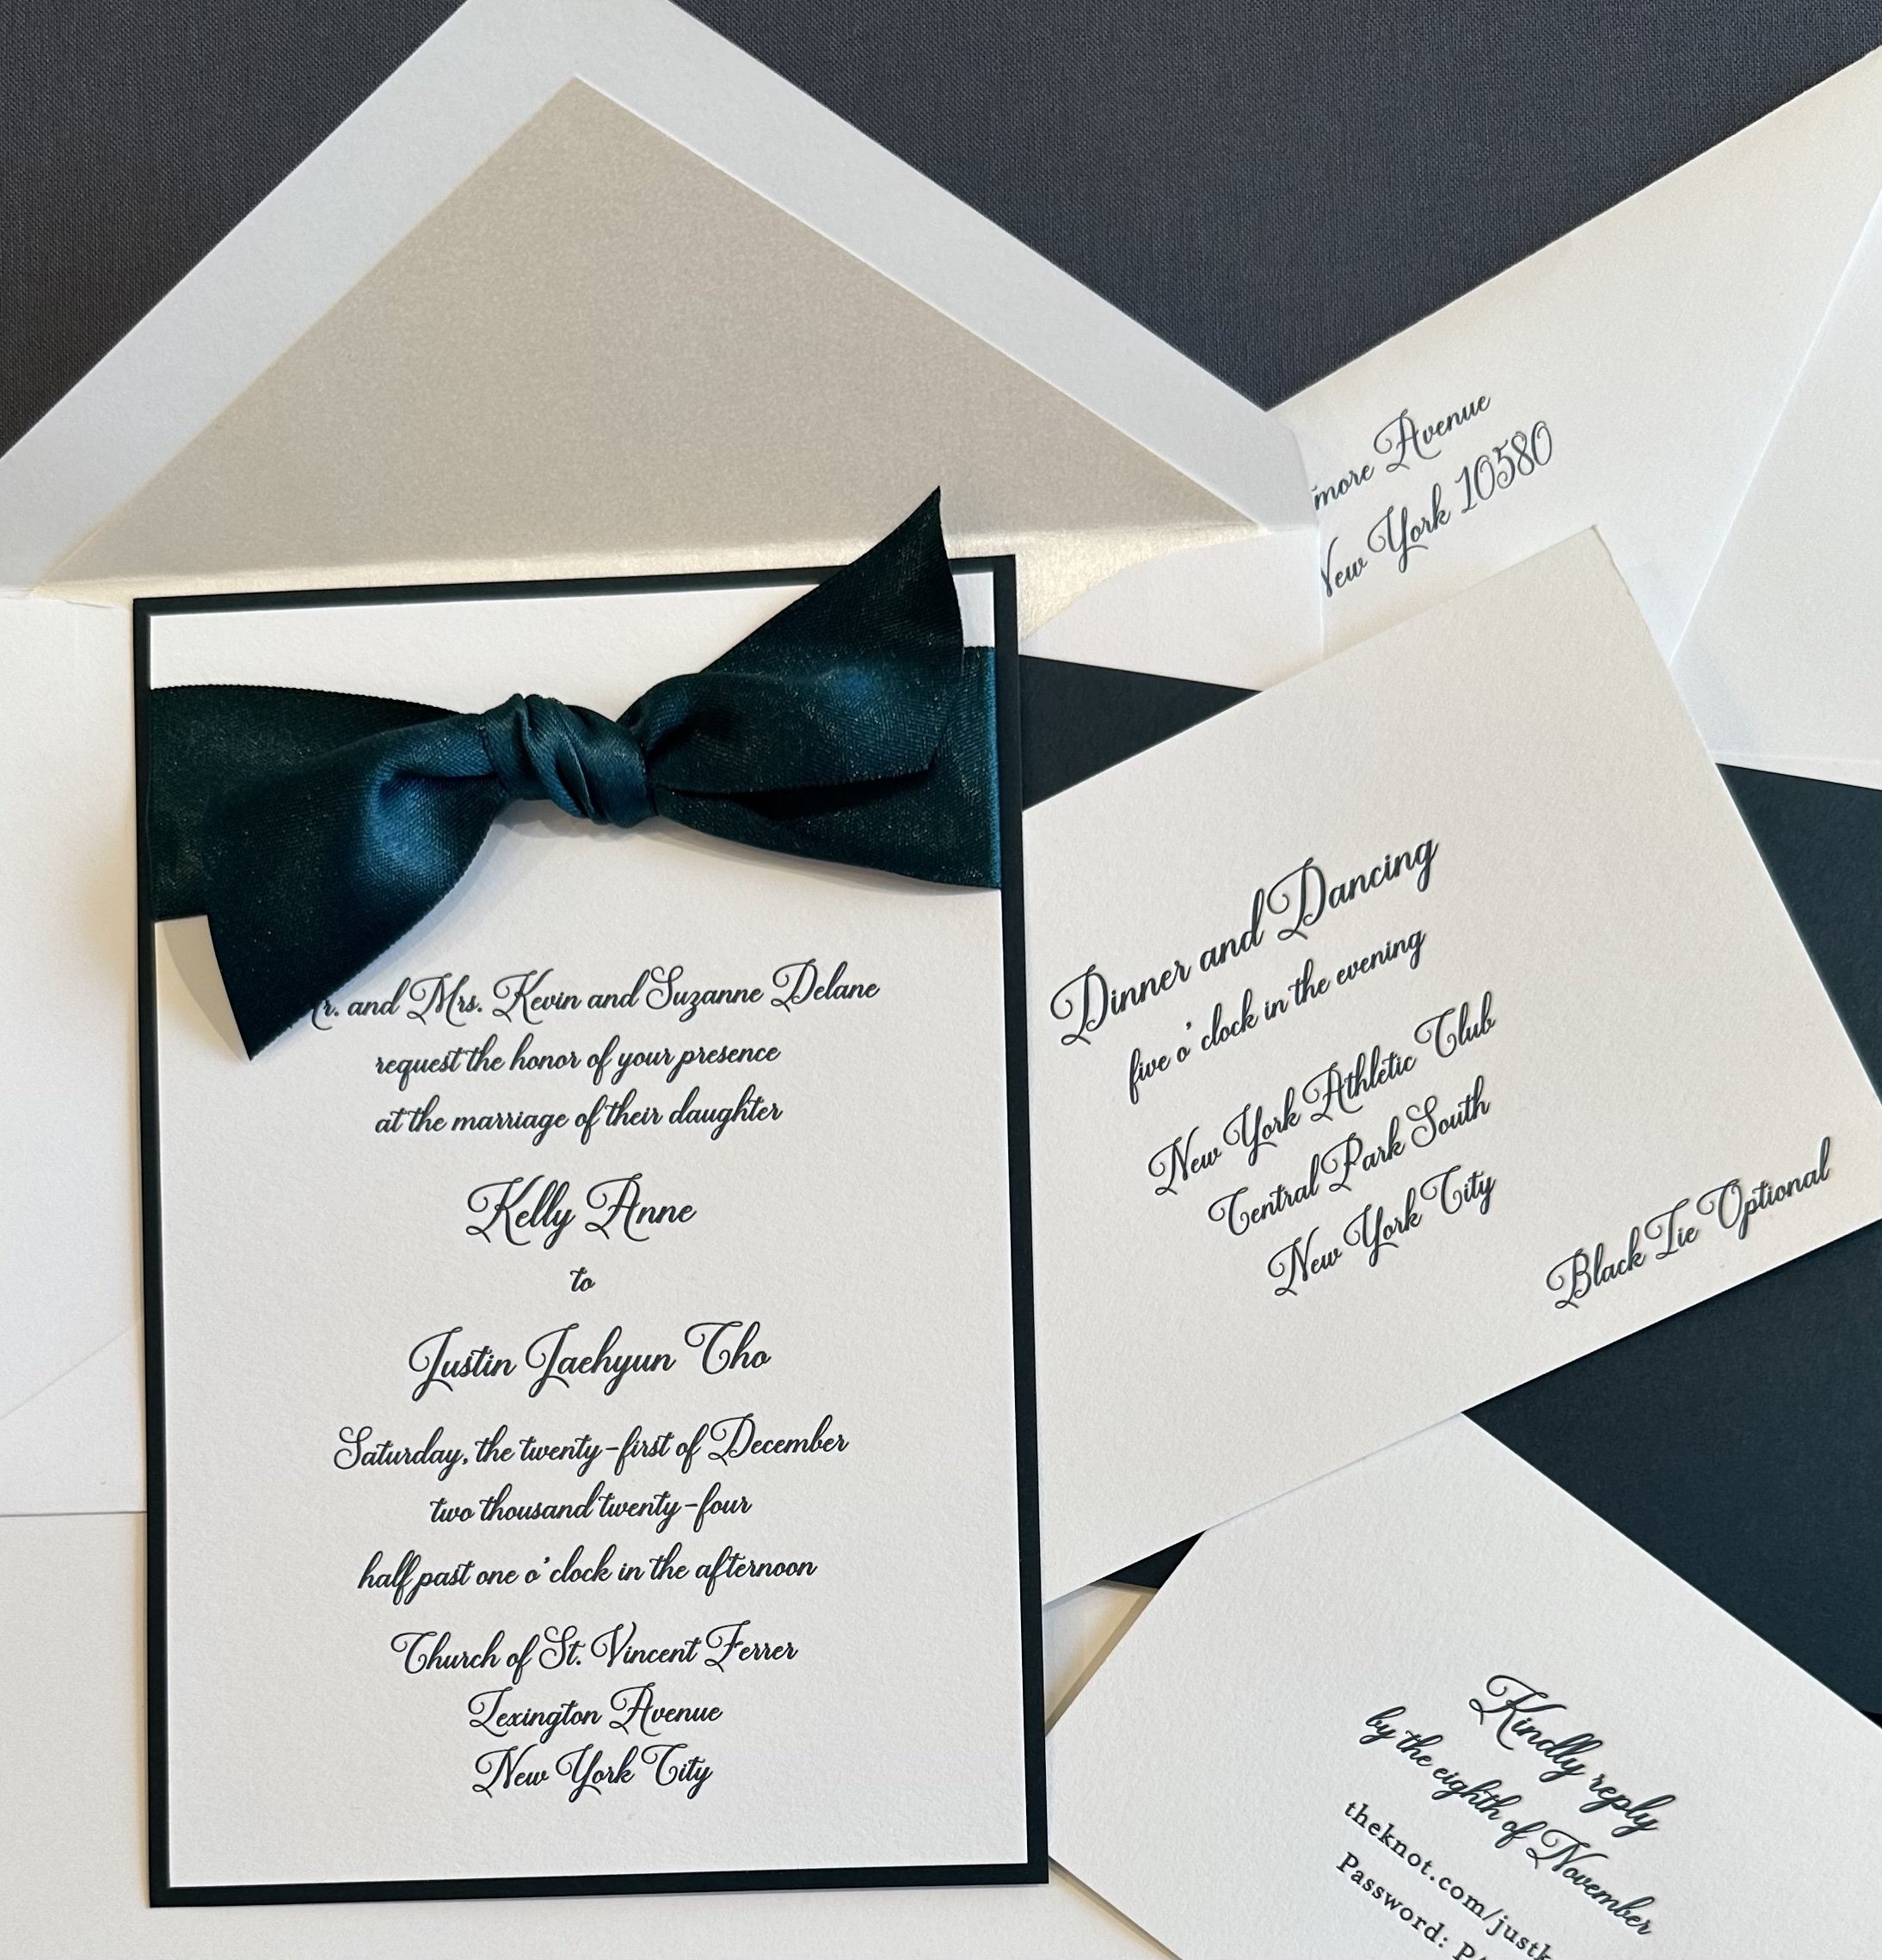 and Mrs. Kevin and Suzanne Delane
request the honor of your presence
at the marriage of their daughter
Kelly Anne
to
Justin Jaehyun Cho
Saturday, the twenty-first of December
two thousand twenty-four
half past one o'clock in the afternoon
Church of St. Vincent Ferrer
Lexington Avenue
New York City
Avenue
New York 10580
Dinner and Dancing
five o'clock in the evening
New York Athletic Club
Central Park South
New York City
Black Tie Optional
Kindly reply
by the eighth of November
theknot.com/justk
Password: